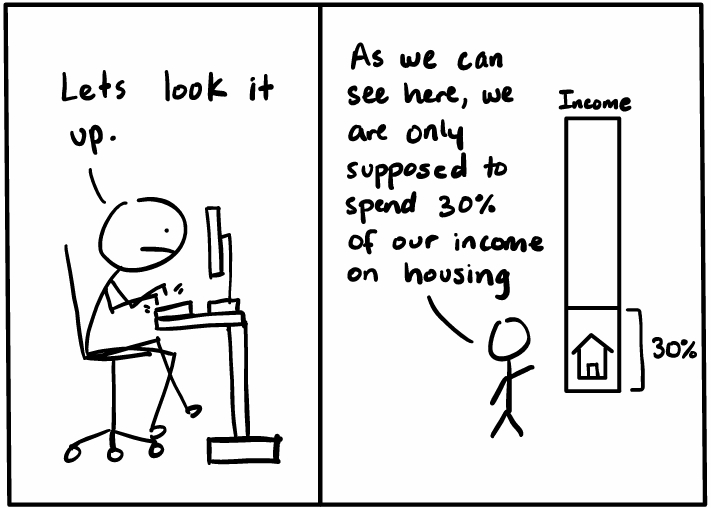 Lets look it
up.
As we can
see here, we
are only
supposed to
spend 30%
of our income
on housing
Income
30%